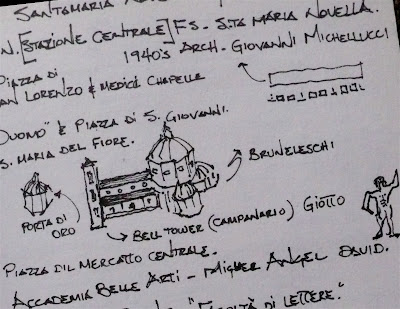 SANTAMARIA
N. [STAZIONE CENTRALE] FS - S.TA MARIA NOVELLA.
1940'S ARCH - GIOVANNI MICHELLUCCI
PIAZZA DI
SAN LORENZO & MEDICI CHAPELLE
"DUOMO" & PIAZZA DI S. GIOVANNI.
S. MARIA DEL FIORE.
BRUNELESCHI
PORTA DI
ORO
BELL TOWER (CAMPANARIO) GIOTTO
PIAZZA DIL MERCATTO CENTRALE.
ACCADEMIA BELLE ARTI - MIGUEL ANGEL DAVID.
DI LETTERE."